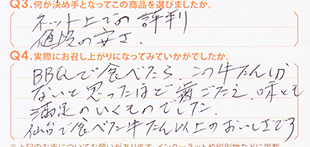 Q3.何が決め手となってこの商品を選びましたか。
ネット上での評判
値段の安さ.
Q4.実際にお召し上がりになってみていかがでしたか。
BBQで食べたら、この牛たんしか
ないと思ったほど歯ごたえ、味とも
満足のいくものでした。
仙台で食べた牛たん以上のおいしさです